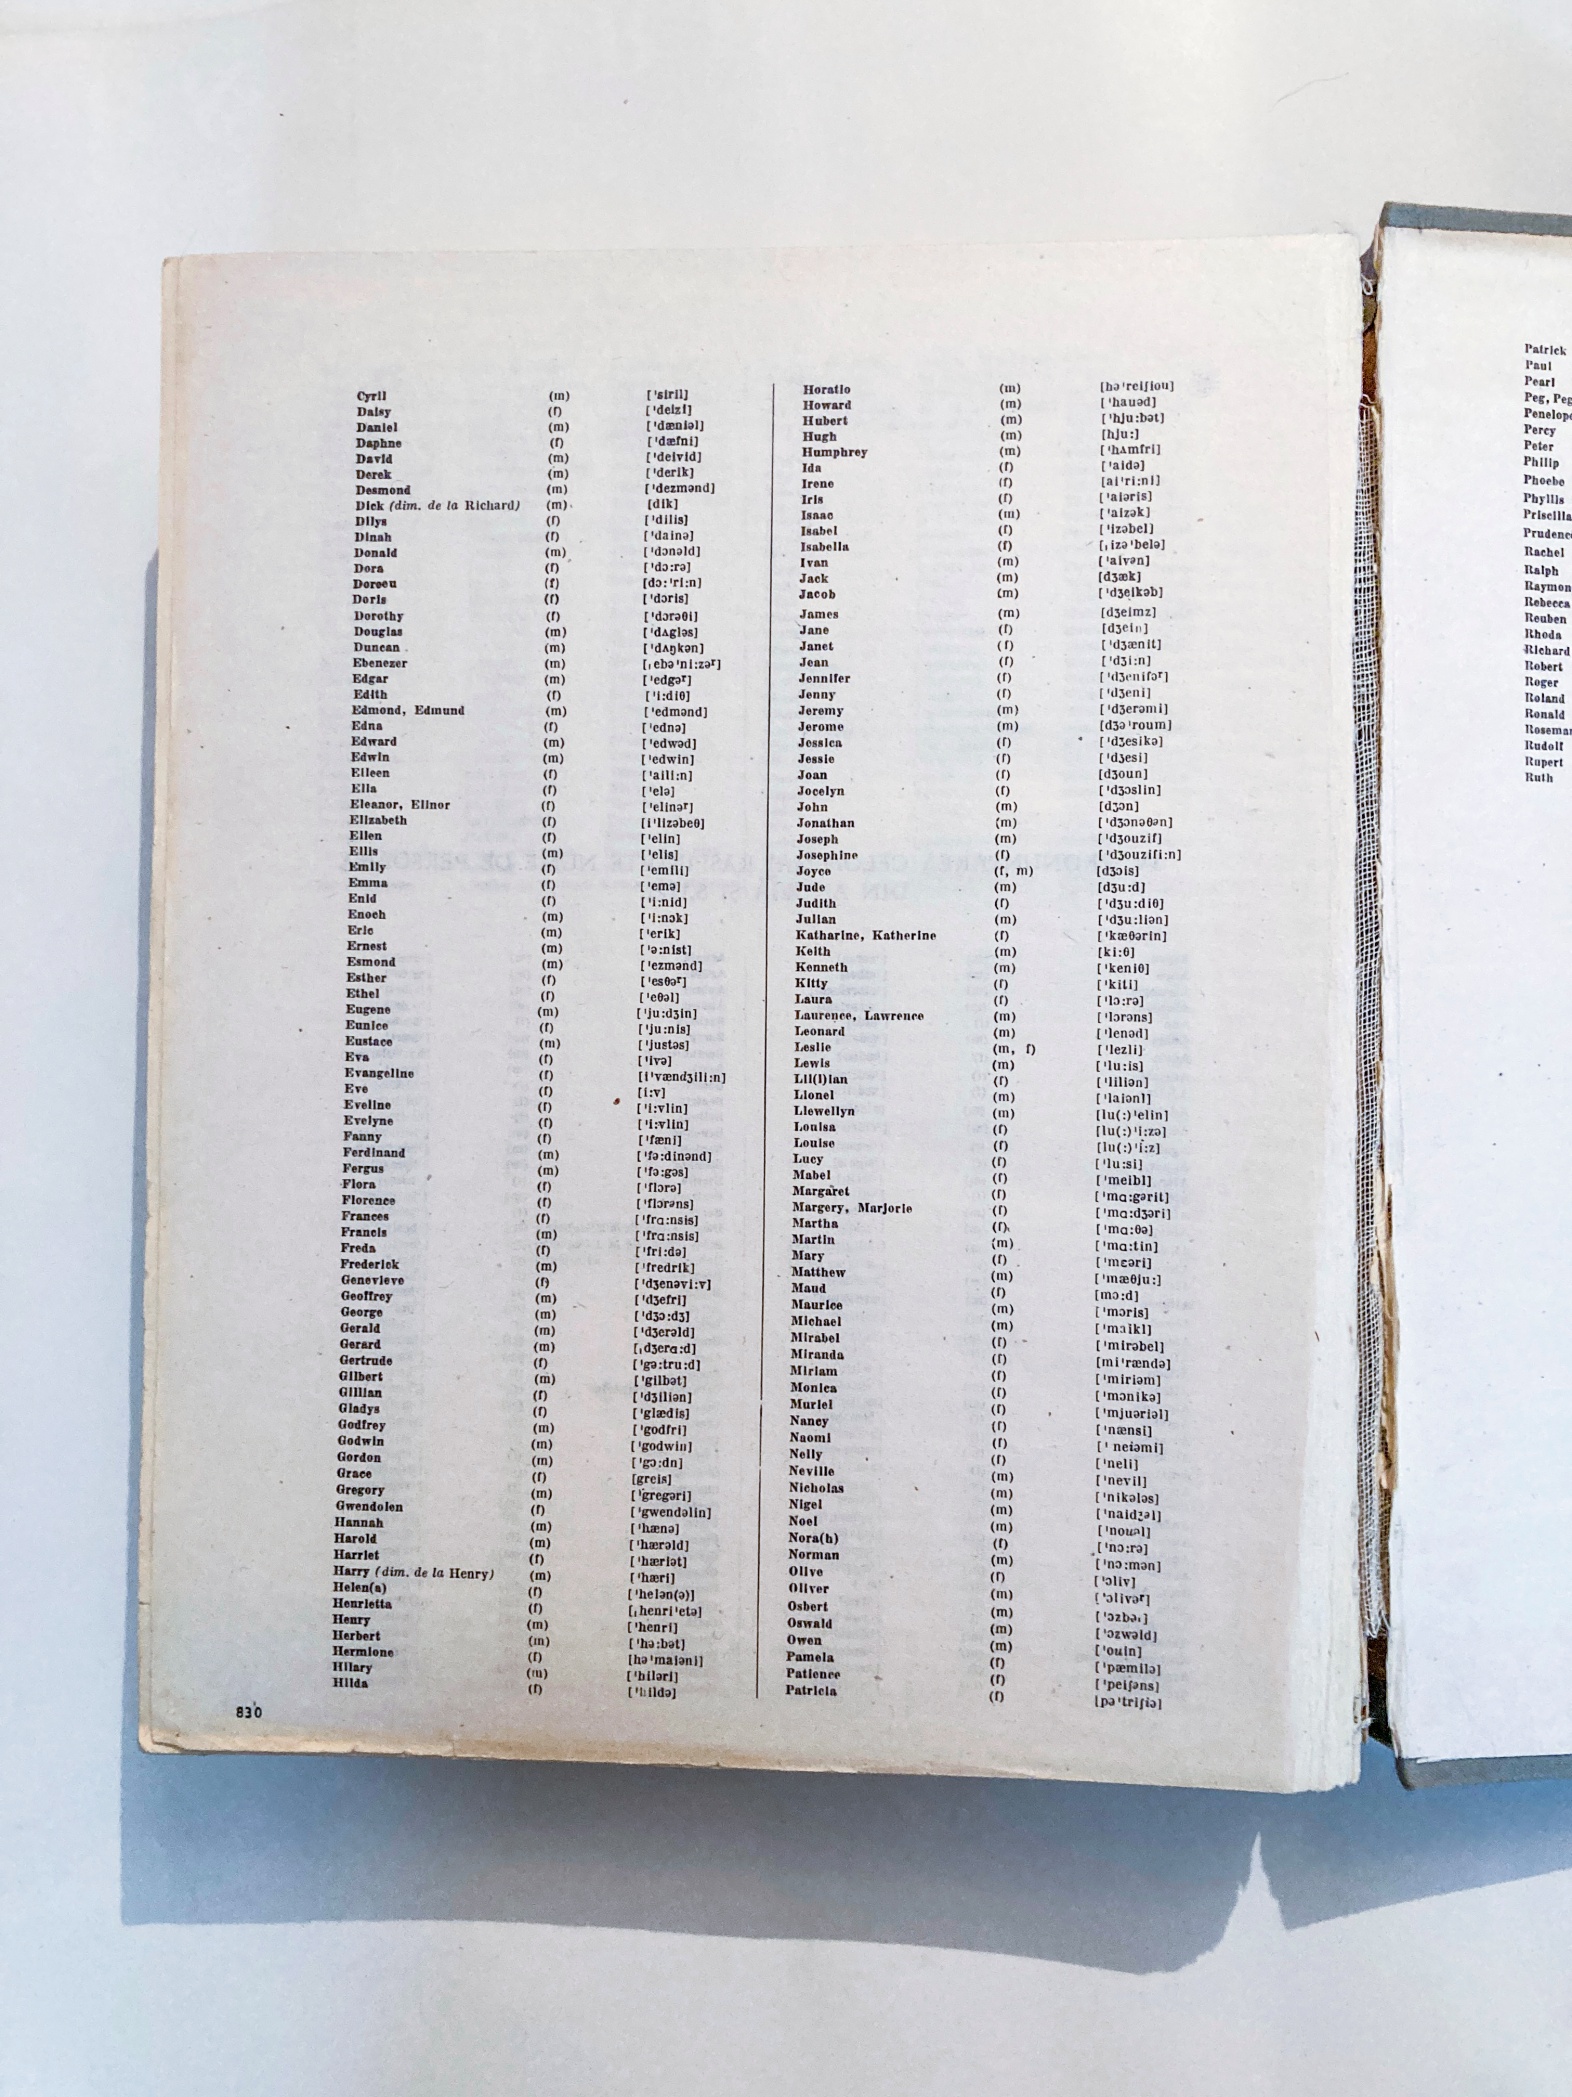 Cyril (m) ['siril]
Daisy (f) ['deizi]
Daniel (m) ['dæniəl]
Daphne (f) ['dæfni]
David (m) ['deivid]
Derek (m) ['derik]
Desmond (m) ['dezmənd]
Dick (dim. de la Richard) (m) [dik]
Dilys (f) ['dilis]
Dinah (f) ['dainə]
Donald (m) ['dɔnəld]
Dora (f) ['dɔ:rə]
Doreen (f) [dɔ:'ri:n]
Doris (f) ['dɔris]
Dorothy (f) ['dɔrəθi]
Douglas (m) ['dʌgləs]
Duncan (m) ['dʌŋkən]
Ebenezer (m) [ˌebə'ni:zəʳ]
Edgar (m) ['edgəʳ]
Edith (f) ['i:diθ]
Edmond, Edmund (m) ['edmənd]
Edna (f) ['ednə]
Edward (m) ['edwəd]
Edwin (m) ['edwin]
Eileen (f) ['aili:n]
Ella (f) ['elə]
Eleanor, Elinor (f) ['elinəʳ]
Elizabeth (f) [i'lizəbeθ]
Ellen (f) ['elin]
Ellis (m) ['elis]
Emily (f) ['emili]
Emma (f) ['emə]
Enid (f) ['i:nid]
Enoch (m) ['i:nɔk]
Eric (m) ['erik]
Ernest (m) ['ə:nist]
Esmond (m) ['ezmənd]
Esther (f) ['esθəʳ]
Ethel (f) ['eθəl]
Eugene (m) ['ju:dʒin]
Eunice (f) ['ju:nis]
Eustace (m) ['justəs]
Eva (f) ['ivə]
Evangeline (f) [i'vændʒili:n]
Eve (f) [i:v]
Eveline (f) ['i:vlin]
Evelyne (f) ['i:vlin]
Fanny (f) ['fæni]
Ferdinand (m) ['fə:dinənd]
Fergus (m) ['fə:gəs]
Flora (f) ['flɔrə]
Florence (f) ['flɔrəns]
Frances (f) ['frɑ:nsis]
Francis (m) ['frɑ:nsis]
Freda (f) ['fri:də]
Frederick (m) ['fredrik]
Genevieve (f) ['dʒenəvi:v]
Geoffrey (m) ['dʒefri]
George (m) ['dʒɔ:dʒ]
Gerald (m) ['dʒerəld]
Gerard (m) [ˌdʒerɑ:d]
Gertrude (f) ['gə:tru:d]
Gilbert (m) ['gilbət]
Gillian (f) ['dʒiliən]
Gladys (f) ['glædis]
Godfrey (m) ['godfri]
Godwin (m) ['godwin]
Gordon (m) ['gɔ:dn]
Grace (f) [greis]
Gregory (m) ['gregəri]
Gwendolen (f) ['gwendəlin]
Hannah (m) ['hænə]
Harold (m) ['hærəld]
Harriet (f) ['hæriət]
Harry (dim. de la Henry) (m) ['hæri]
Helen(a) (f) ['helən(ə)]
Henrietta (f) [ˌhenri'etə]
Henry (m) ['henri]
Herbert (m) ['hə:bət]
Hermione (f) [hə'maiəni]
Hilary (m) ['hiləri]
Hilda (f) ['hildə]
830
Horatio (m) [hə'reiʃiou]
Howard (m) ['hauəd]
Hubert (m) ['hju:bət]
Hugh (m) [hju:]
Humphrey (m) ['hʌmfri]
Ida (f) ['aidə]
Irene (f) [ai'ri:ni]
Iris (f) ['aiəris]
Isaac (m) ['aizək]
Isabel (f) ['izəbel]
Isabella (f) [ˌizə'belə]
Ivan (m) ['aivən]
Jack (m) [dʒæk]
Jacob (m) ['dʒeikəb]
James (m) [dʒeimz]
Jane (f) [dʒein]
Janet (f) ['dʒænit]
Jean (f) ['dʒi:n]
Jennifer (f) ['dʒenifəʳ]
Jenny (f) ['dʒeni]
Jeremy (m) ['dʒerəmi]
Jerome (m) [dʒə'roum]
Jessica (f) ['dʒesikə]
Jessie (f) ['dʒesi]
Joan (f) [dʒoun]
Jocelyn (f) ['dʒɔslin]
John (m) [dʒɔn]
Jonathan (m) ['dʒɔnəθən]
Joseph (m) ['dʒouzif]
Josephine (f) ['dʒouzifi:n]
Joyce (f, m) [dʒɔis]
Jude (m) [dʒu:d]
Judith (f) ['dʒu:diθ]
Julian (m) ['dʒu:liən]
Katharine, Katherine (f) ['kæθərin]
Keith (m) [ki:θ]
Kenneth (m) ['keniθ]
Kitty (f) ['kiti]
Laura (f) ['lɔ:rə]
Laurence, Lawrence (m) ['lɔrəns]
Leonard (m) ['lenəd]
Leslie (m, f) ['lezli]
Lewis (m) ['lu:is]
Lil(l)ian (f) ['liliən]
Lionel (m) ['laiənl]
Llewellyn (m) [lu(:)'elin]
Louisa (f) [lu(:)'i:zə]
Louise (f) [lu(:)'i:z]
Lucy (f) ['lu:si]
Mabel (f) ['meibl]
Margaret (f) ['mɑ:gərit]
Margery, Marjorie (f) ['mɑ:dʒəri]
Martha (f) ['mɑ:θə]
Martin (m) ['mɑ:tin]
Mary (f) ['mɛəri]
Matthew (m) ['mæθju:]
Maud (f) [mɔ:d]
Maurice (m) ['mɔris]
Michael (m) ['maikl]
Mirabel (f) ['mirəbel]
Miranda (f) [mi'rændə]
Miriam (f) ['miriəm]
Monica (f) ['mɔnikə]
Muriel (f) ['mjuəriəl]
Nancy (f) ['nænsi]
Naomi (f) ['neiəmi]
Nelly (f) ['neli]
Neville (m) ['nevil]
Nicholas (m) ['nikələs]
Nigel (m) ['naidʒəl]
Noel (m) ['nouəl]
Nora(h) (f) ['nɔ:rə]
Norman (m) ['nɔ:mən]
Olive (f) ['ɔliv]
Oliver (m) ['ɔlivəʳ]
Osbert (m)
Oswald (m) ['ɔzwəld]
Owen (m) ['ouin]
Pamela (f) ['pæmilə]
Patience (f) ['peiʃəns]
Patricia (f) [pə'triʃiə]
Patrick
Paul
Pearl
Peg,
Percy
Peter
Philip
Phoebe
Phyllis
Priscilla
Rachel
Ralph
Rebecca
Reuben
Rhoda
Richard
Robert
Roger
Roland
Ronald
Rudolf
Rupert
Ruth